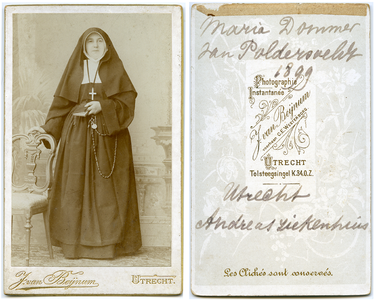 J. van Beijnum
UTRECHT.
Maria Dommer
van Poldersveldt
1899
Photographie
Instantanée
J. van Beijnum
UTRECHT
Tolsteegsingel K.34.O.Z.
Utrecht
Andreas Ziekenhuis
Les Clichés sont conservés.